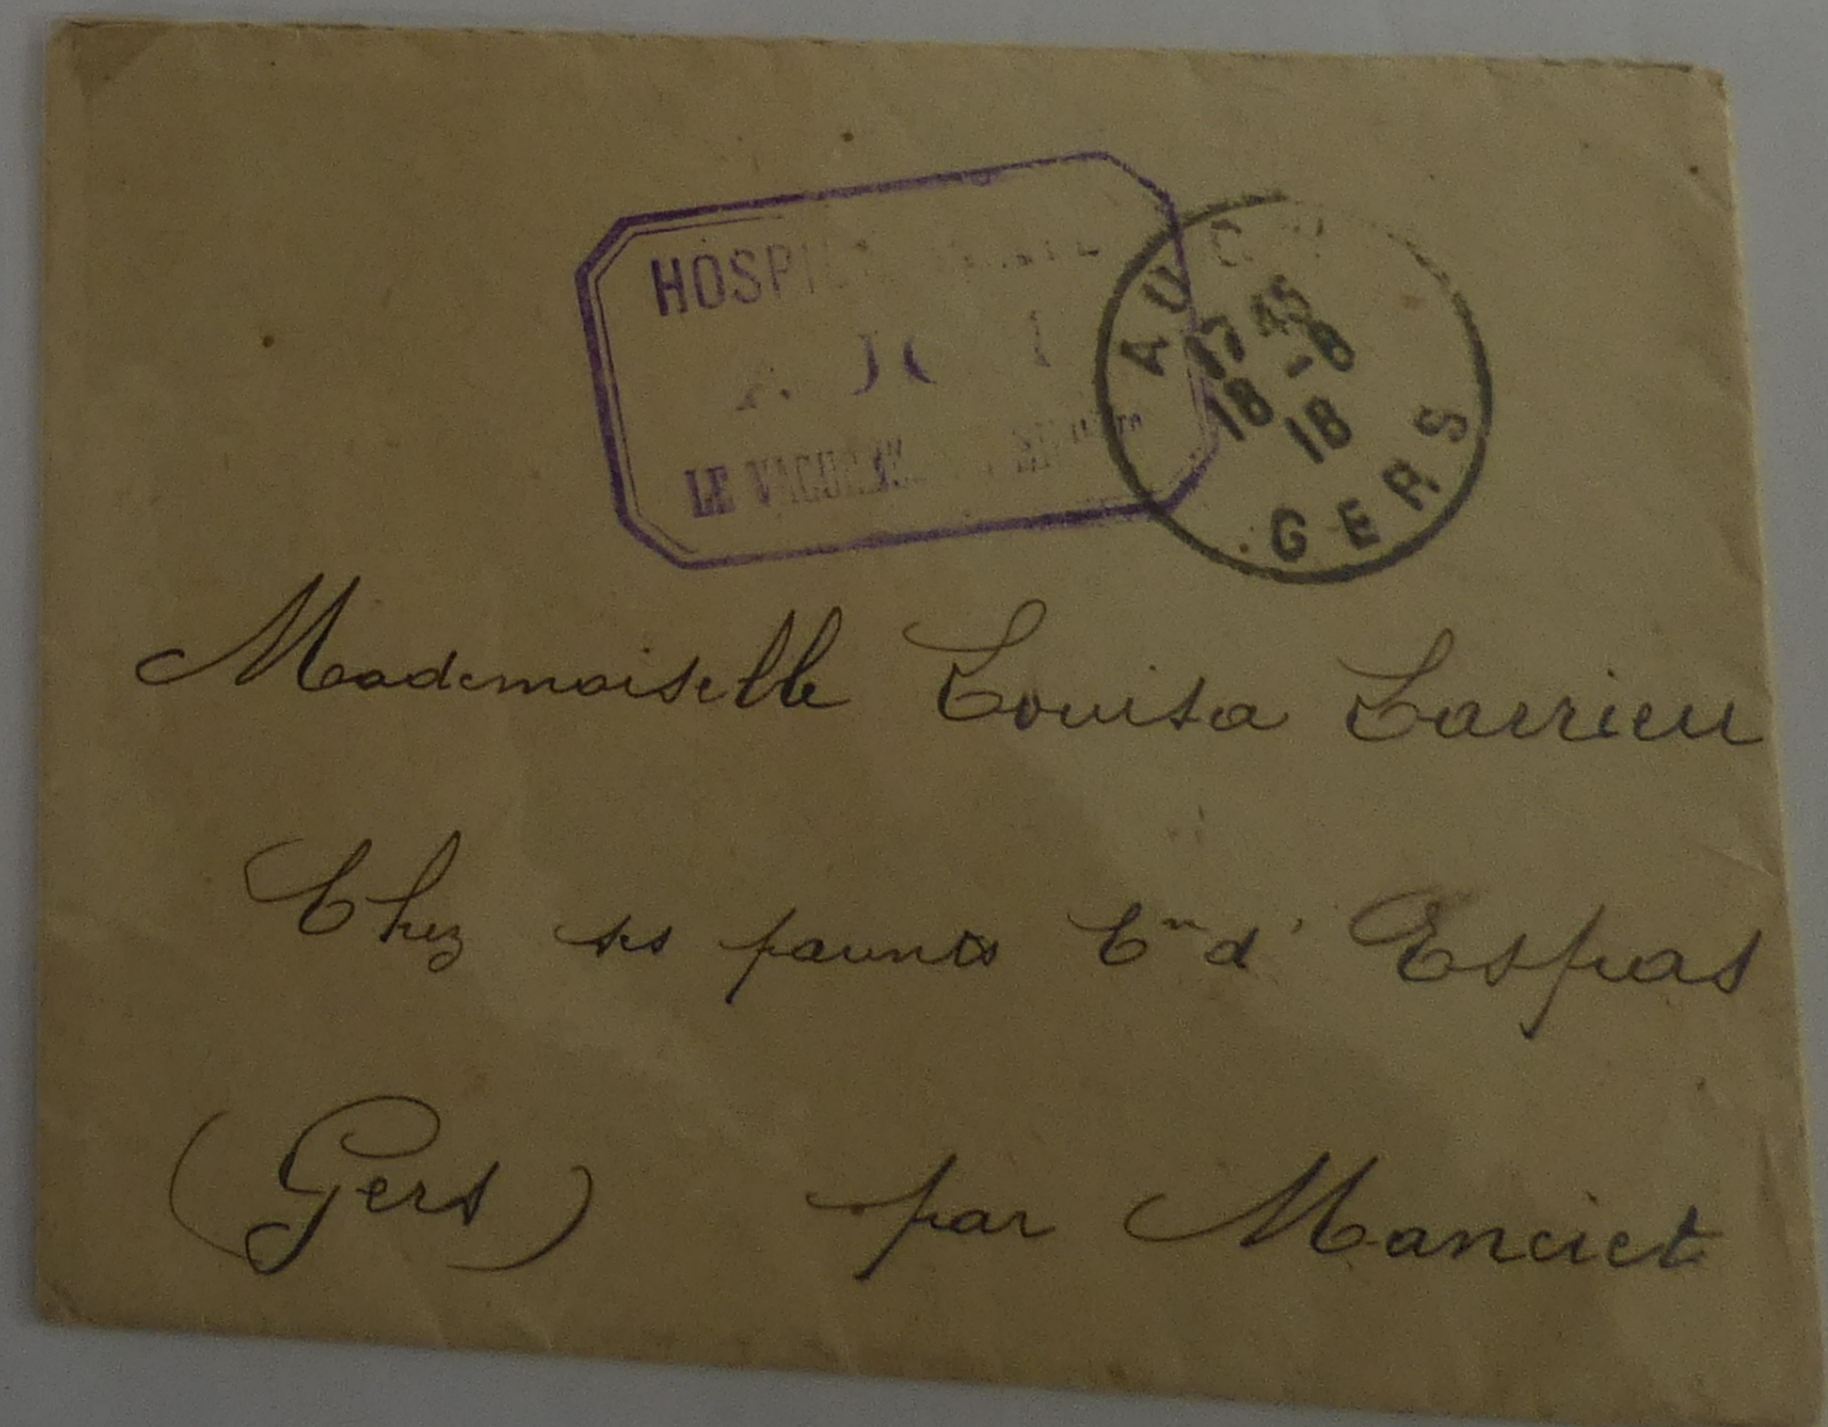 HOSPICE
LE VAGUEMESTRE
AUCH
17 45
18 -8
18
GERS
Mademoiselle Louisa Larrieu
Chez ses parents Cne d'Espas
(Gers) par Manciet